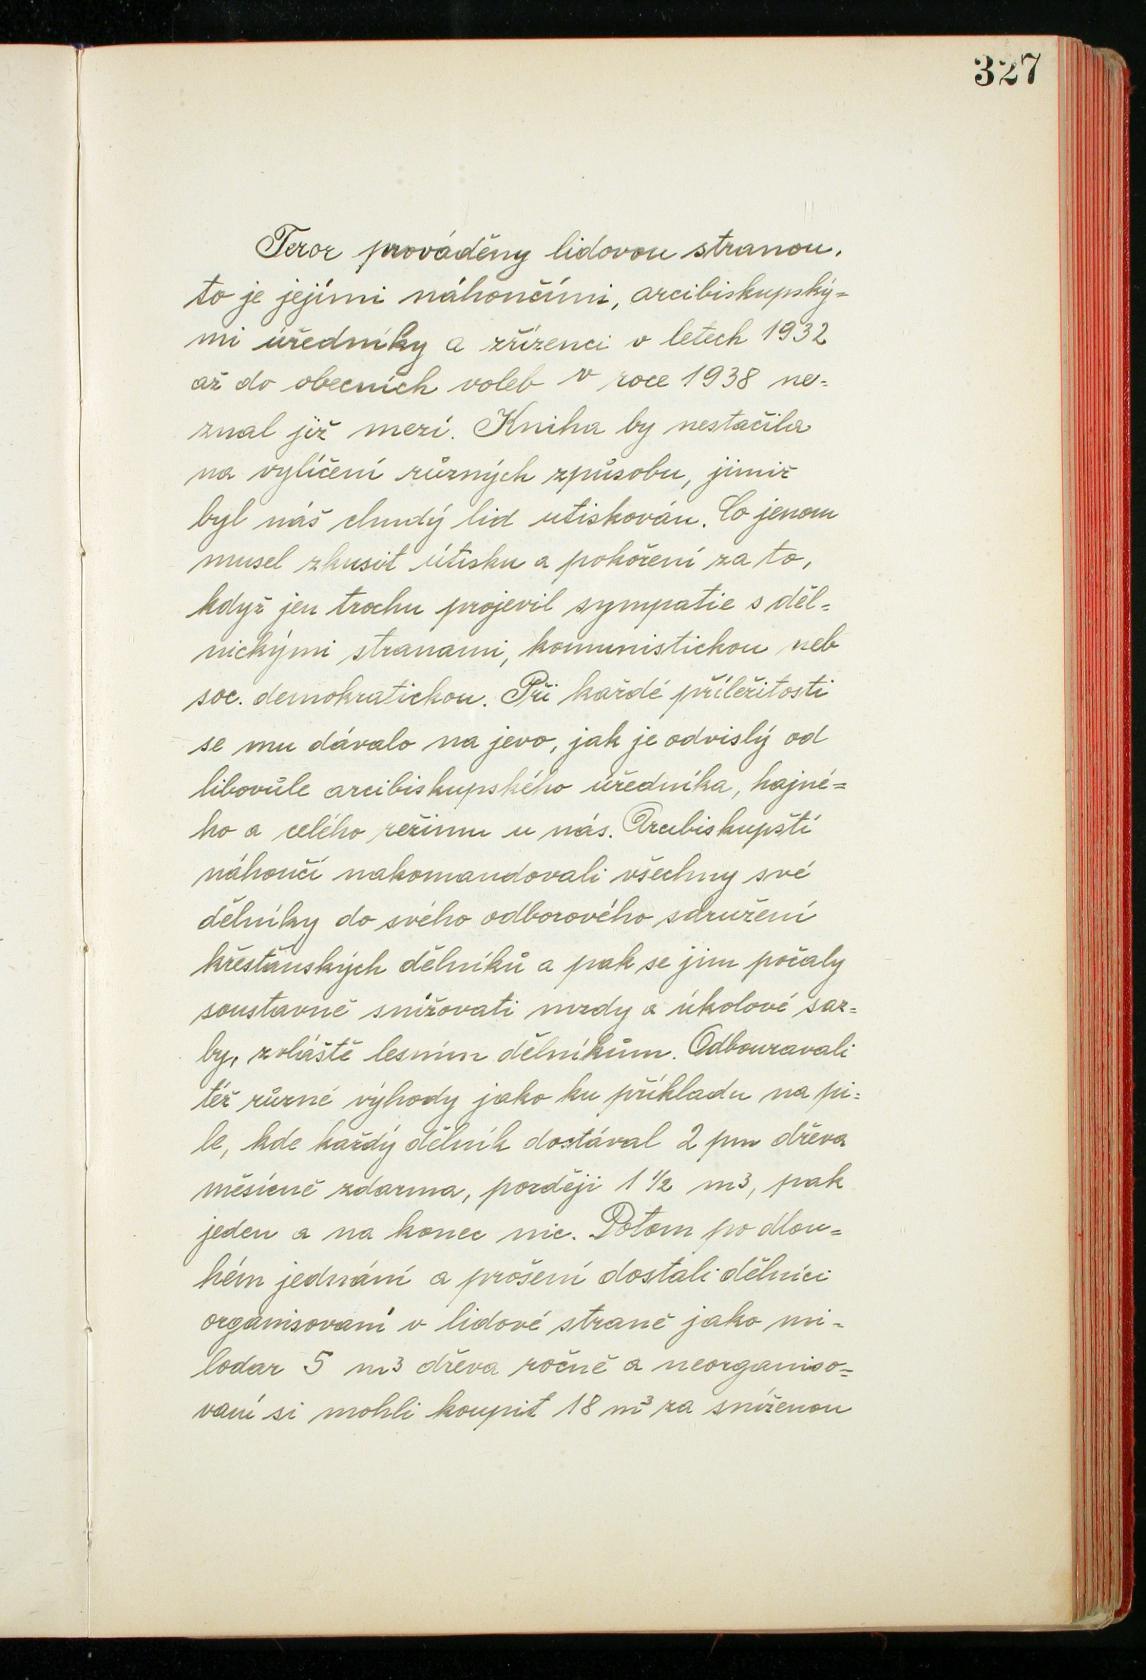 327
Teror prováděny lidovou stranou,
to je jejími náhončími, arcibiskupský=
mi úředníky a zřízenci v letech 1932
až do obecních voleb v roce 1938 ne=
znal již mezí. Kniha by nestačila
na vylíčení různých způsobu, jimiž
byl náš chudý lid utiskován. Co jenom
musel zkusit útisku a pokoření za to,
když jen trochu projevil sympatie s děl=
nickými stranami, komunistickou neb
soc. demokratickou. Při každé příležitosti
se mu dávalo na jevo, jak je odvislý od
libovůle arcibiskupského úředníka, hajné=
ho a celého režimu u nás. Arcibiskupští
náhončí nakomandovali všechny své
dělníky do svého odborového sdružení
křesťanských dělníků a pak se jim počaly
soustavně snižovati mzdy a úkolové saz=
by, zvláště lesním dělníkům. Odbouravali
též různé výhody jako ku příkladu na pi=
le, kde každý dělník dostával 2 pm dřeva
měsícně zdarma, později 1 1/2 m3, pak
jeden a na konec nic. Potom po dlou=
hém jednání a prošení dostali dělníci
organisovaní v lidové straně jako mi=
lodar 5 m3 dřeva ročně a neorganiso=
vaní si mohli koupit 18 m3 za sníženou